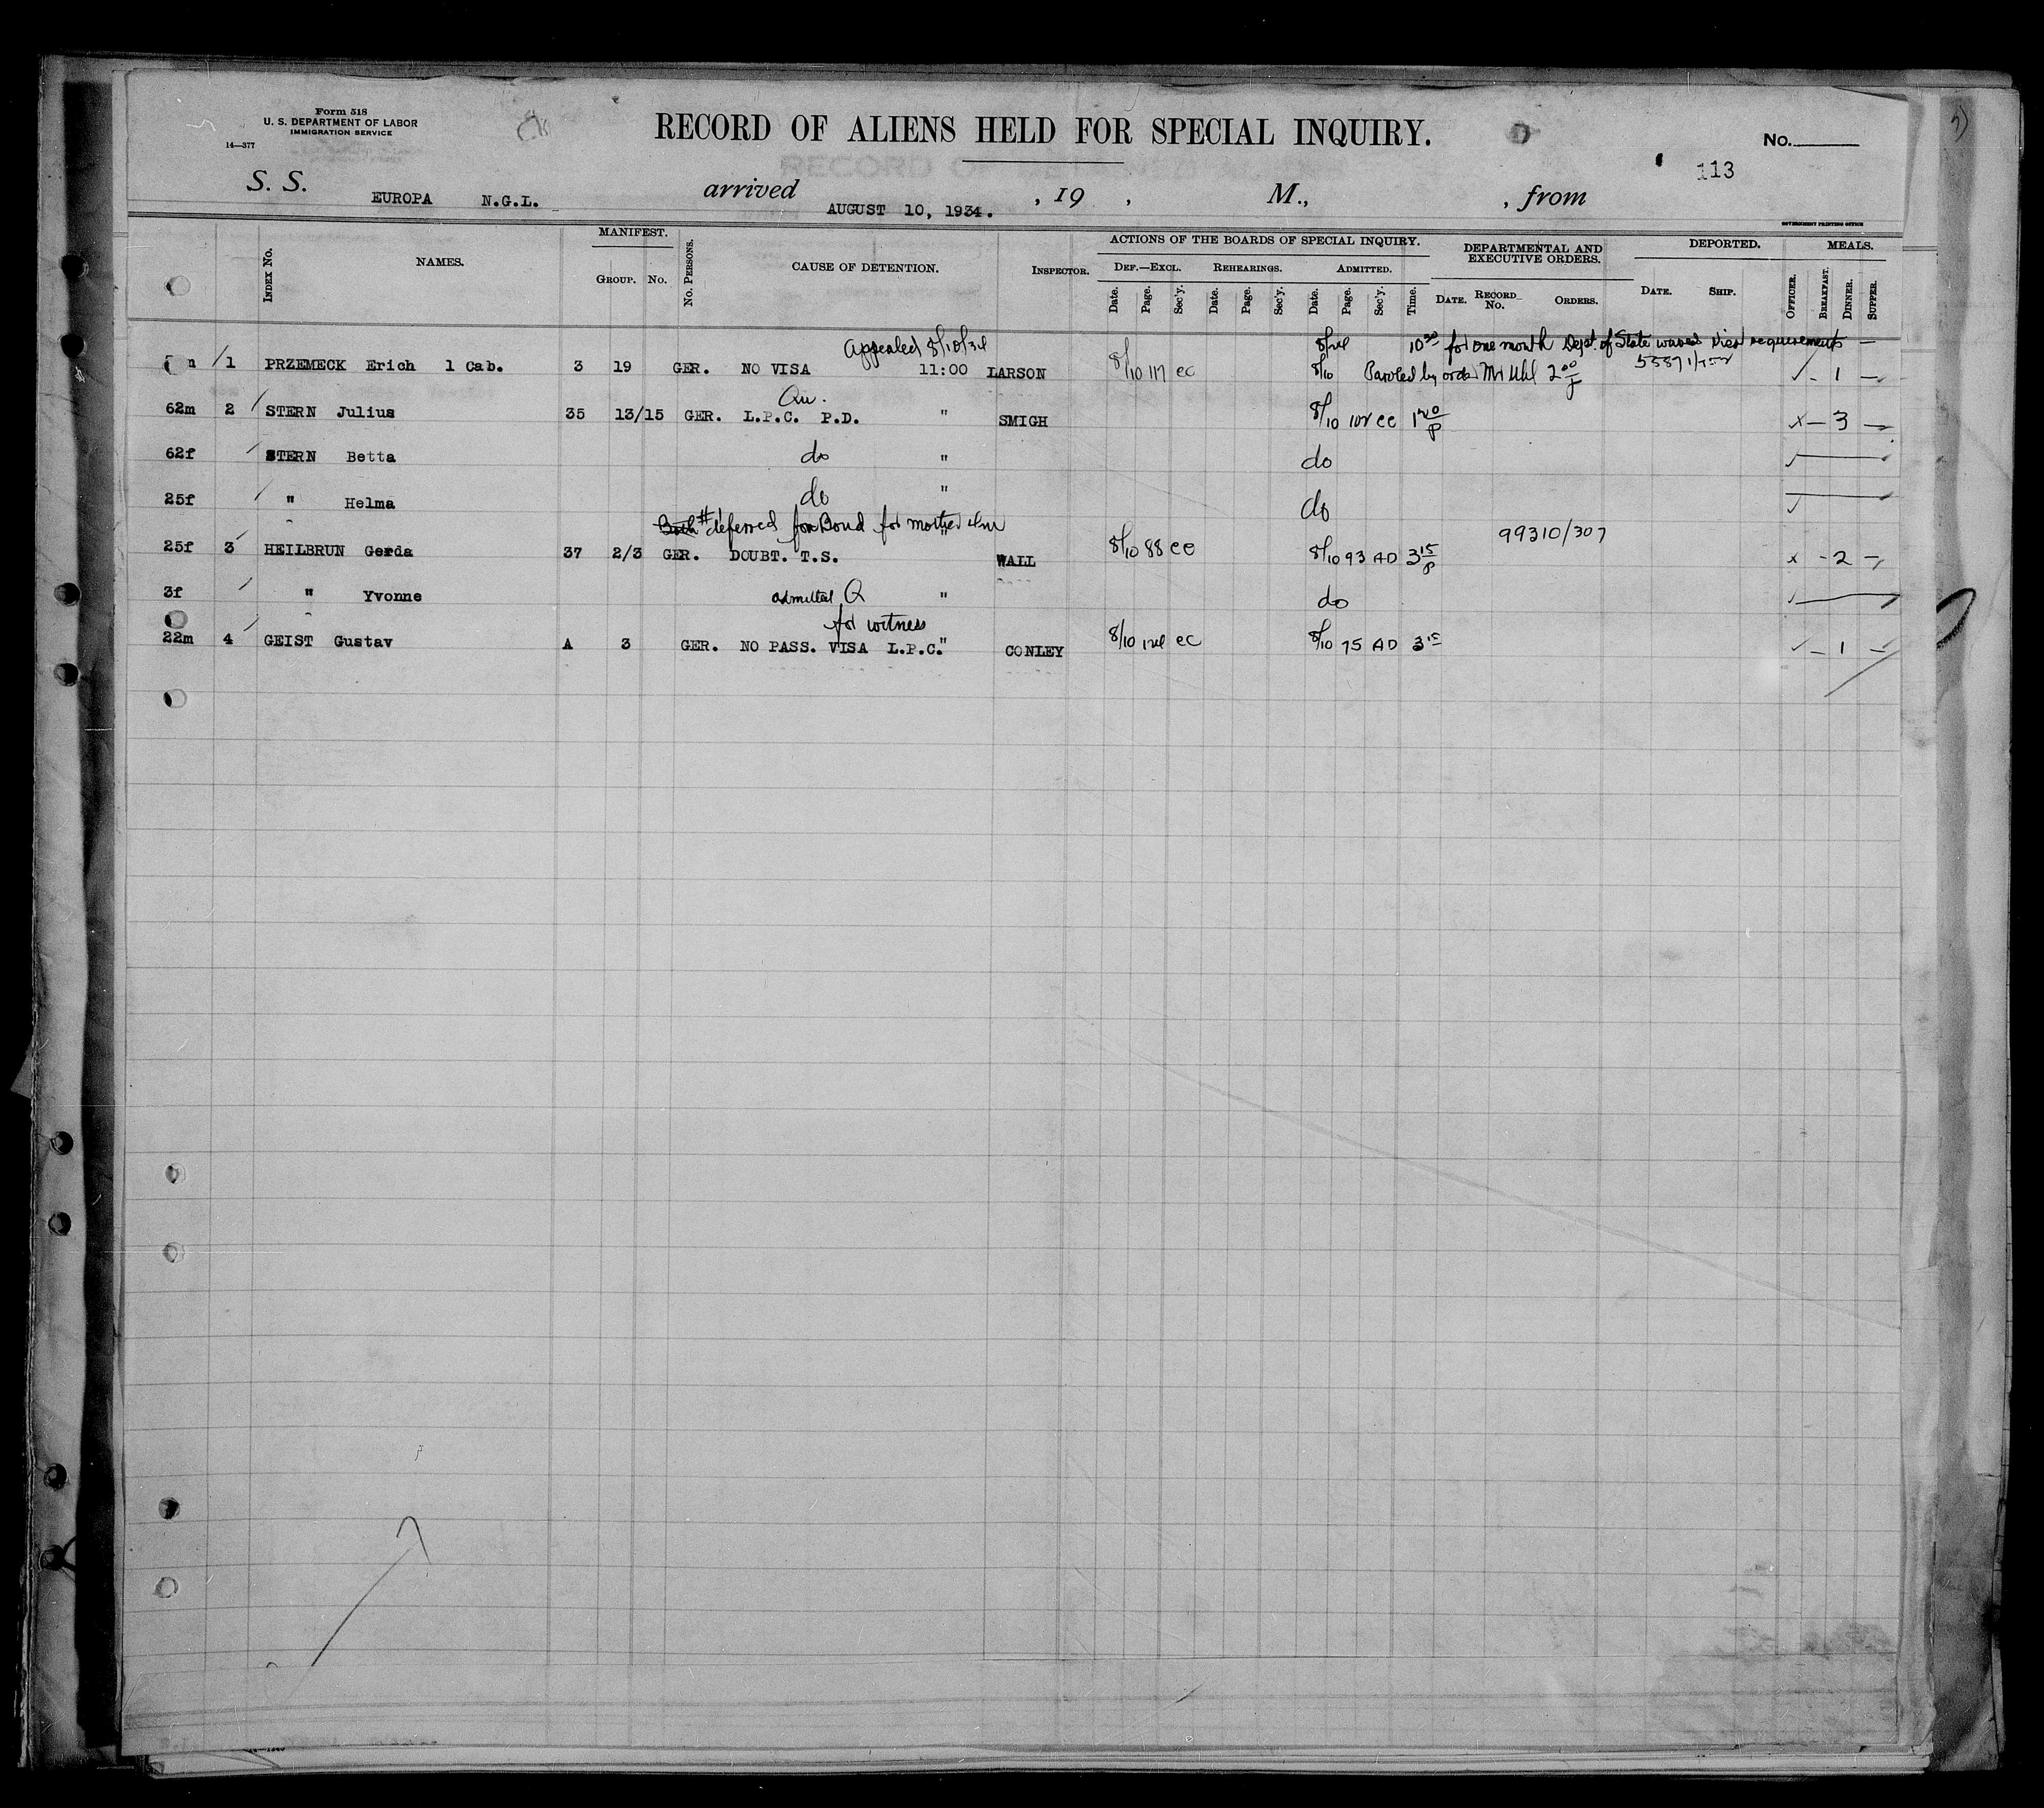 Form 518
U. S. DEPARTMENT OF LABOR
IMMIGRATION SERVICE
14—377
RECORD OF ALIENS HELD FOR SPECIAL INQUIRY.
No.
113
S. S. EUROPA N.G.L. arrived AUGUST 10, 1934. , 19 , M., , from
GOVERNMENT PRINTING OFFICE
INDEX No. NAMES. MANIFEST. GROUP. No. No. PERSONS. CAUSE OF DETENTION. INSPECTOR. ACTIONS OF THE BOARDS OF SPECIAL INQUIRY. DEPARTMENTAL AND EXECUTIVE ORDERS. DEPORTED. MEALS.
DEF.—EXCL. REHEARINGS. ADMITTED.
Date. Page. Sec'y. Date. Page. Sec'y. Date. Page. Sec'y. Time. DATE. RECORD No. ORDERS. DATE. SHIP. OFFICER. BREAKFAST. DINNER. SUPPER.
Appealed 8/10/34 10 30 for one month Dept. of State waves requirements
1 PRZEMECK Erich 1 Cab. 3 19 GER. NO VISA 11:00 LARSON 8/10 117 EC 8/10 Paroled by order Mr Uhl 2 00 1
Qu.
62m 2 STERN Julius 35 13/15 GER. L.P.C. P.D. " SMIGH 8/10 102 EC 1 20 P 3
62f STERN Betta do " do
25f " Helma do " do
Both # deferred for Bond for mother 99310/307
25f 3 HEILBRUN Gerda 37 2/3 GER. DOUBT. T.S. " WALL 8/10 88 EC 8/10 93 AD 3 15 P 2
3f " Yvonne admitted Q " do
for witness
22m 4 GEIST Gustav A 3 GER. NO PASS. VISA L.P.C." CONLEY 8/10 124 EC 8/10 75 AD 3 15 1